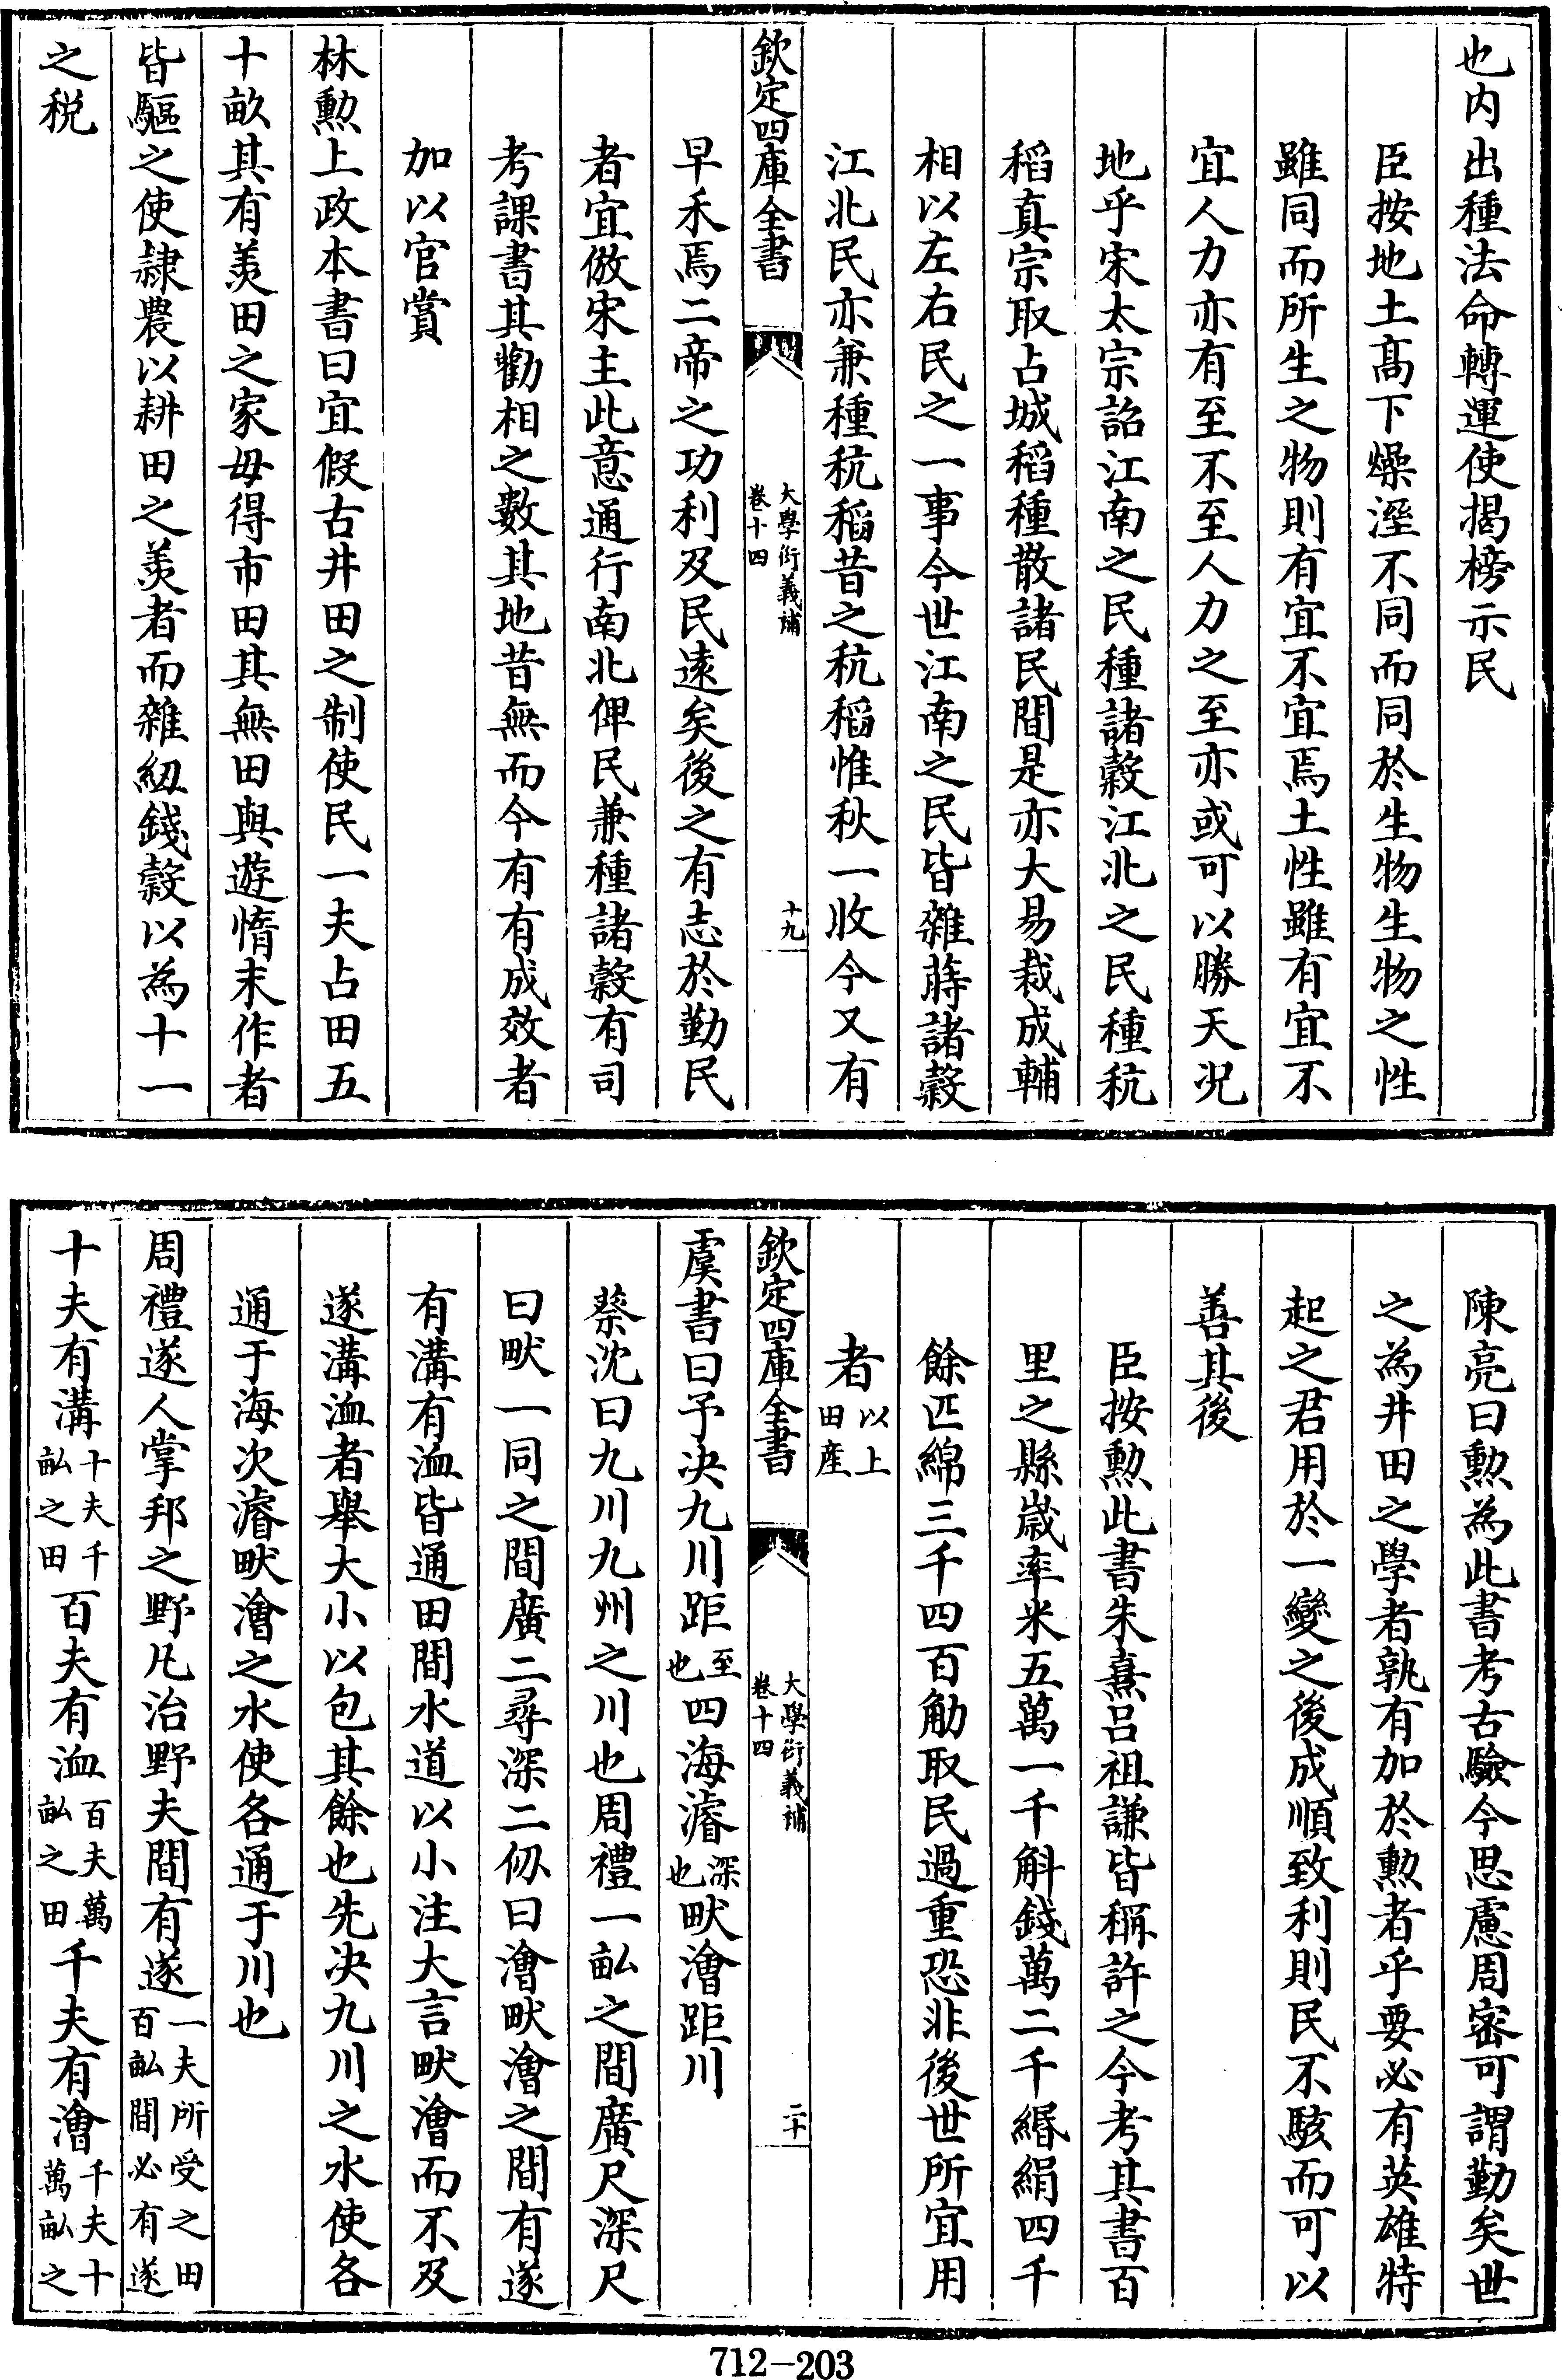 也内出種法命轉運使揭榜示民
臣按地土髙下燥溼不同而同於生物生物之性
雖同而所生之物則有宜不宜焉土性雖有宜不
宜人力亦有至不至人力之至亦或可以勝天况
地乎宋太宗詔江南之民種諸榖江北之民種秔
稻真宗取占城稻種散諸民間是亦大易裁成輔
相以左右民之一事今世江南之民皆雜蒔諸榖
江北民亦兼種秔稻昔之秔稻惟秋一收今又有
欽定四庫全書
大學衍義補
卷十四
十九
早禾焉二帝之功利及民遠矣後之有志於勤民
者宜倣宋主此意通行南北俾民兼種諸榖有司
考課書其勸相之數其地昔無而今有有成效者
加以官賞
林勲上政本書曰宜假古井田之制使民一夫占田五
十畝其有羨田之家毋得市田其無田與遊惰末作者
皆驅之使隷農以耕田之羨者而雜紐錢榖以為十一
之税
陳亮曰勲為此書考古驗今思慮周密可謂勤矣世
之為井田之學者孰有加於勲者乎要必有英雄特
起之君用於一變之後成順致利則民不駭而可以
善其後
臣按勲此書朱熹呂祖謙皆稱許之今考其書百
里之縣歲率米五萬一千斛錢萬二千緡絹四千
餘匹綿三千四百觔取民過重恐非後世所宜用
者以上田産
欽定四庫全書
大學衍義補
卷十四
二十
虞書曰予决九川距至也四海濬深也畎澮距川
蔡沈曰九川九州之川也周禮一畆之間廣尺深尺
曰畎一同之間廣二尋深二仞曰澮畎澮之間有遂
有溝有洫皆通田間水道以小注大言畎澮而不及
遂溝洫者舉大小以包其餘也先决九川之水使各
通于海次濬畎澮之水使各通于川也
周禮遂人掌邦之野凡治野夫間有遂一夫所受之田百畆間必有遂
十夫有溝十夫千畆之田百夫有洫百夫萬畆之田千夫有澮千夫十萬畆之
712-203